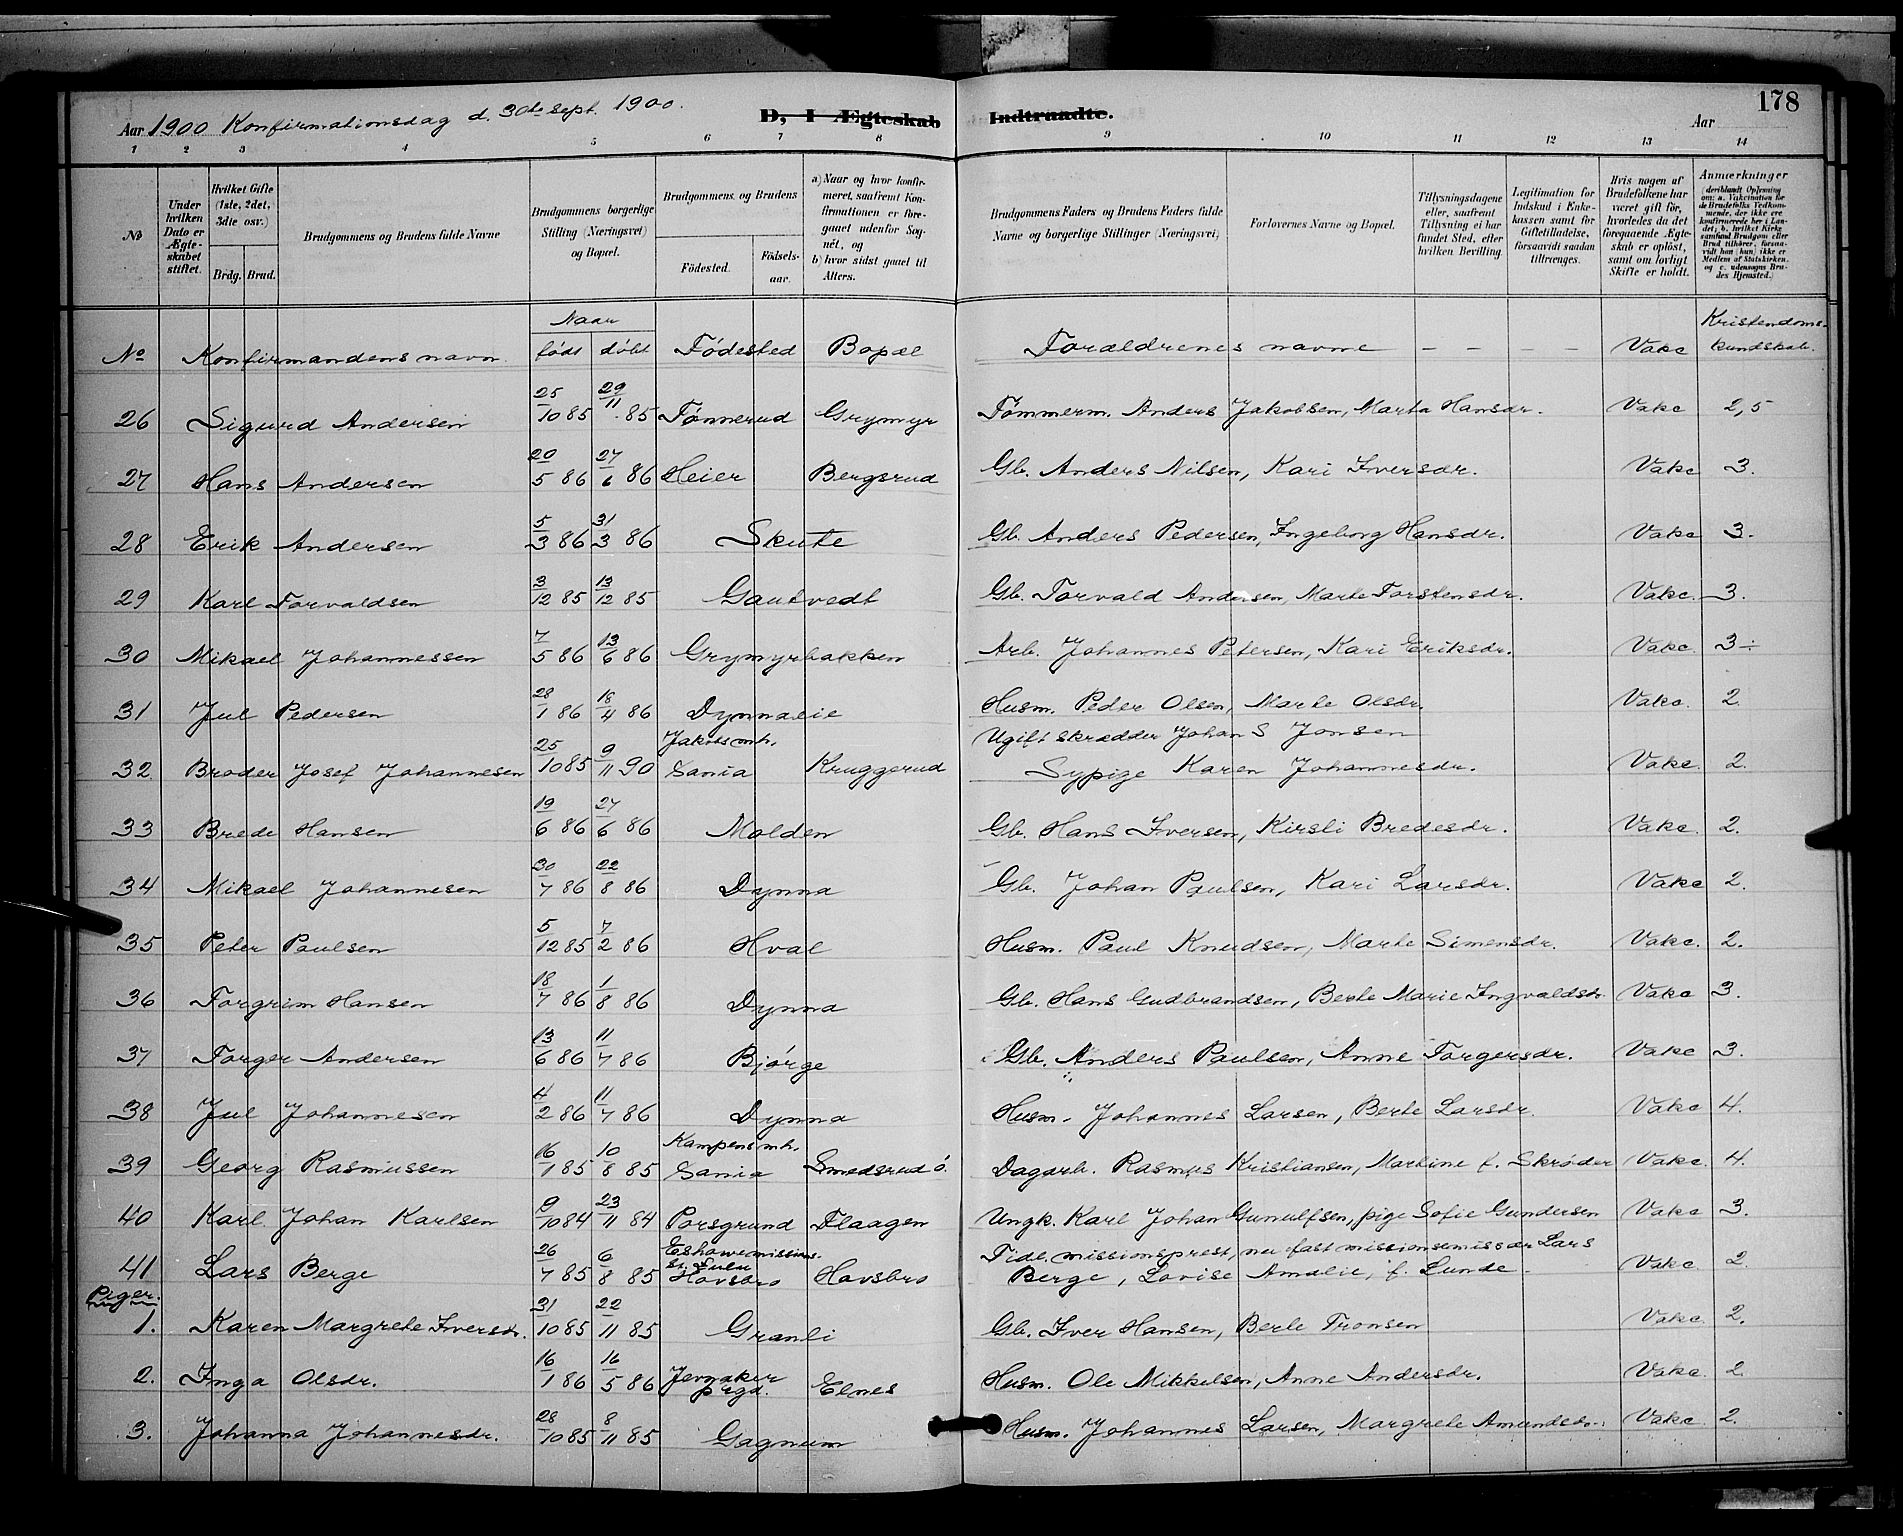 178
Aar 1900 Konfirmationsdag d. 30te sept. 1900. D, I Ægteskab Indtraadte. Aar
1 2 3 4 5 6 7 8 9 10 11 12 13 14
No
Under hvilken Dato er Ægteskabet stiftet.
Hvilket Gifte (1ste, 2det, 3die osv.)
Brdg. Brud.
Brudgommens og Brudens fulde Navne
Brudgommens borgerlige Stilling (Næringsvei) og Bopæl.
Brudgommens og Brudens
Fødested. Fødsels-aar.
a) Naar og hvor konfirmeret, saafremt Konfirmationen er foregaaet udenfor Sognet, og
b) hvor sidst gaaet til Alters.
Brudgommens Faders og Brudens Faders fulde Navne og borgerlige Stillinger (Næringsvei)
Forlovernes Navne og Bopæl.
Tillysningsdagene eller, saafremt Tillysning ei har fundet Sted, efter hvilken Bevilling.
Legitimation for Indskud i Enkekassen samt for Giftetilladelse, forsaavidt saadan tiltrænges.
Hvis nogen af Brudefolkene har været gift før, hvorledes da det foregaaende Ægteskab er opløst, samt om lovligt Skifte er holdt.
Anmærkninger (deriblandt Oplysning om: a. Vaccination for de Brudefolks Vedkommende, der ikke ere konfirmerede her i Landet; b. hvilket Kirkesamfund Brudgom eller Brud tilhører, forsaavidt han (hun) ikke er Medlem af Statskirken, og c. udensogns Brudes Hjemsted.)
No Konfirmandens navn. Naar født døbt Fødested Bopæl Forældrenes navne — — — Vakc Kristendoms-kundskab.
26 Sigurd Andersen 25/10 85 29/11 85 Tønnerud Grymyr Tømmerm. Anders Jakobsen, Marta Hansdr. Vakc 2,5
27 Hans Andersen 20/5 86 27/6 86 Heier Bergsrud Gb. Anders Nilsen, Kari Iversdr. Vakc 3.
28 Erik Andersen 5/3 86 31/3 86 Skute Gb. Anders Pedersen, Ingeborg Hansdr. Vakc 3.
29 Karl Torvaldsen 3/12 85 13/12 85 Gautvedt Gb. Torvald Andersen, Marte Torstensdr. Vakc. 3.
30 Mikael Johannessen 7/5 86 13/6 86 Grymyrbakken Arb. Johannes Petersen, Kari Eriksdr. Vakc. 3÷
31 Jul Pedersen 28/1 86 18/4 86 Dynnaeie Husm. Peder Olsen, Marte Olsdr. Vakc. 2.
32 Broder Josef Johannesen 25/10 85 9/11 90 Jakobs mh. Xania Kruggerud Ugift skrædder Johan S Jonsen
Sypige Karen Johannesdr. Vakc. 2.
33 Brede Hansen 19/6 86 27/6 86 Molden Gb. Hans Iversen, Kirsti Bredesdr. Vakc. 2.
34 Mikael Johannesen 30/7 86 22/8 86 Dynna Gb. Johan Paulsen, Kari Larsdr. Vakc 2.
35 Peter Paulsen 5/12 85 7/2 86 Hval Husm. Paul Knudsen, Marte Simensdr. Vakc. 2.
36 Torgrim Hansen 18/7 86 1/8 86 Dynna Gb. Hans Gudbrandsen, Berte Marie Ingvaldsdr. Vakc 3.
37 Torger Andersen 13/6 86 11/7 86 Bjørge Gb. Anders Paulsen, Anne Torgersdr. Vakc 3.
38 Jul Johannesen 4/2 86 11/7 86 Dynna Husm. Johannes Larsen, Berte Larsdr. Vakc 4.
39 Georg Rasmussen 16/1 85 10/8 85 Kampens mh. Xania Smedsrud ø. Dagarb. Rasmus Kristiansen, Martine f. Skrøder Vakc. 4.
40 Karl Johan Karlsen 9/10 84 23/11 84 Porsgrund Flaagen Ungk. Karl Johan Gunulfsen, pige Sofie Gundersen Vakc 3.
41 Lars Berge 26/7 85 6/8 85 Eshowe missions. st. Zulu Hovsbro Hovsbro Tidl. missionsprest, nu fast missionsemissær Lars
Berge, Lovise Amalie, f. Lunde Vakc. 2.
Piger.
1. Karen Margrete Iversdr. 31/10 85 22/11 85 Granli Gb. Iver Hansen, Berte Tronsen Vakc. 2.
2. Inga Olsdr. 16/1 86 16/5 86 Jevnaker prgd. Elnes Husm. Ole Mikkelsen, Anne Andersdr. Vakc. 2.
3. Johanna Johannesdr. 28/10 85 8/11 85 Gagnum Husm. Johannes Larsen, Margrete Amundsdr. Vakc 2.